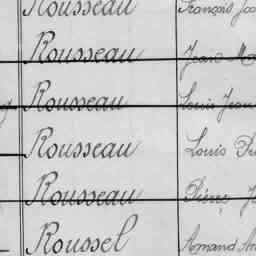 Rousseau François
Rousseau Jean
Rousseau Louis Jean
Rousseau Louis
Rousseau Pierre
Roussel Amand